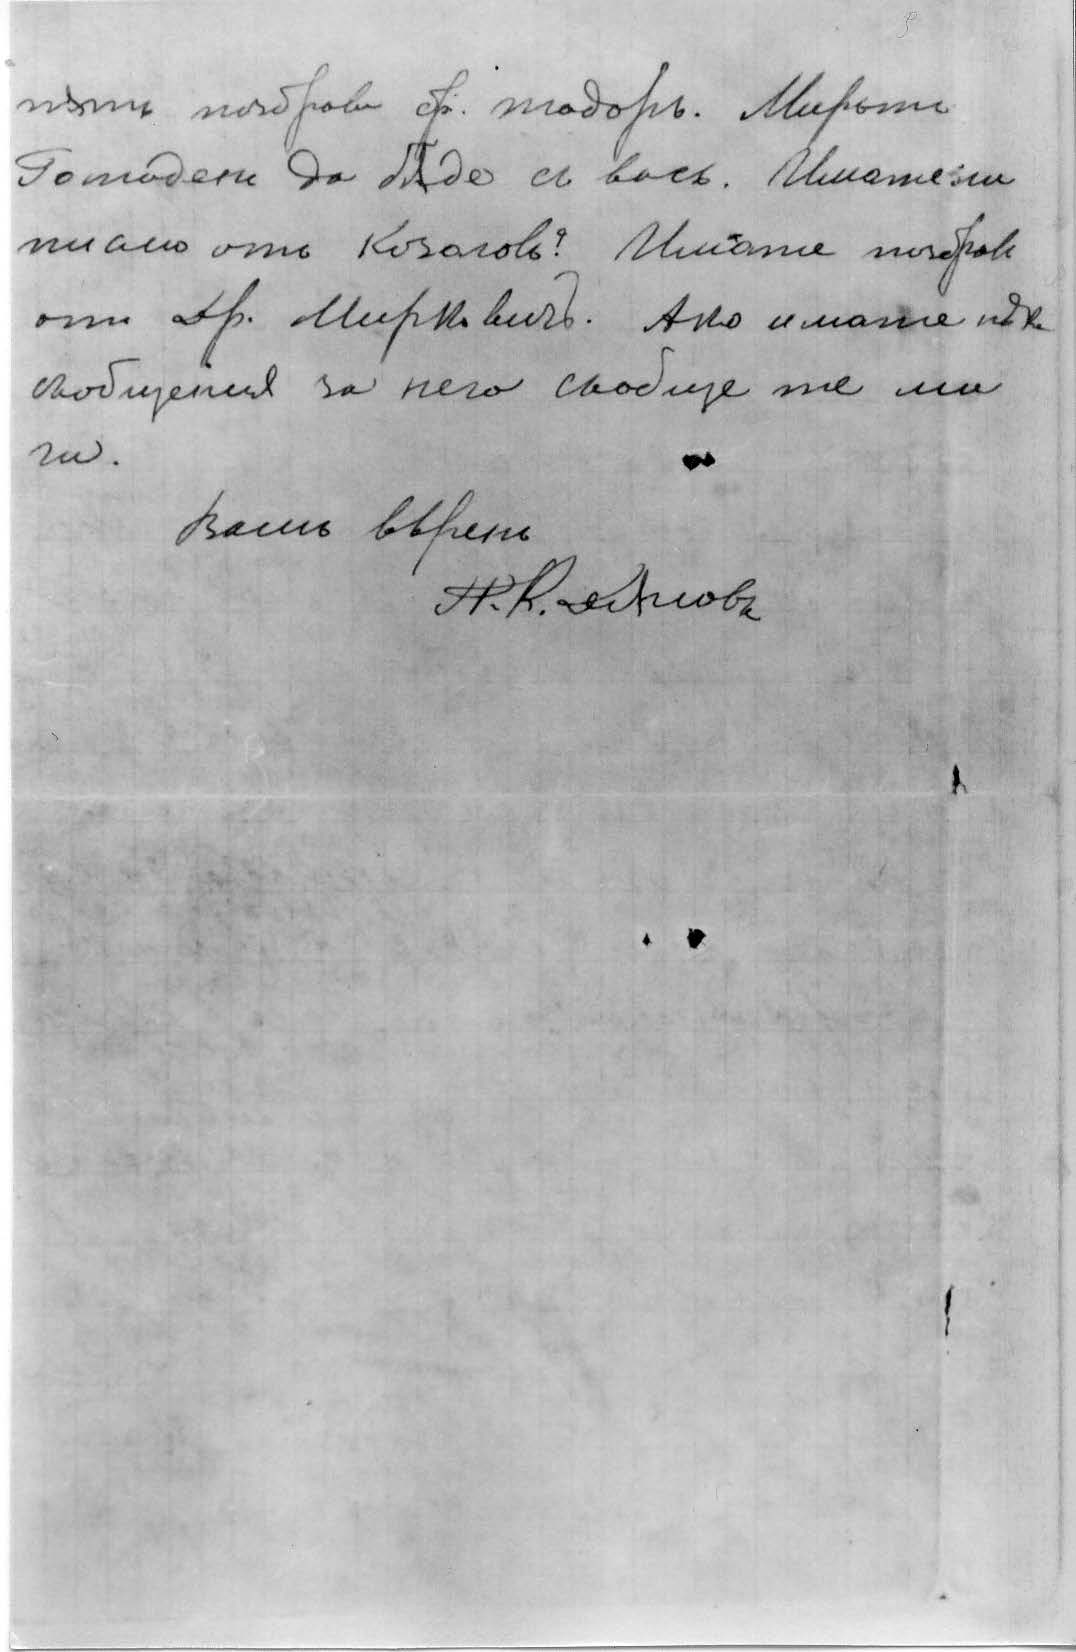 пѫть поздрави бр. тодоръ. Мирътъ
Господенъ да бѫде съ васъ. Имате ли
писмо отъ Козаковъ? Имате поздрав
отъ Др. Мирковичъ. Ако имате нѣк
съобщения за него съобще те ми
ги.
Вашъ вѣренъ
П. К. Дѫновъ